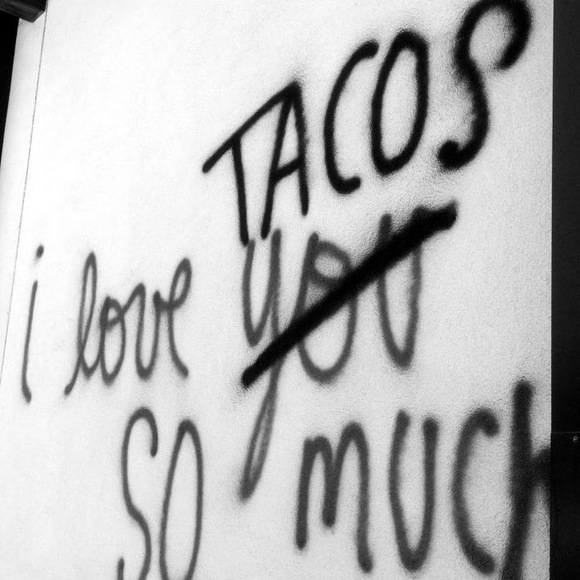 TACOS
i love you
so much